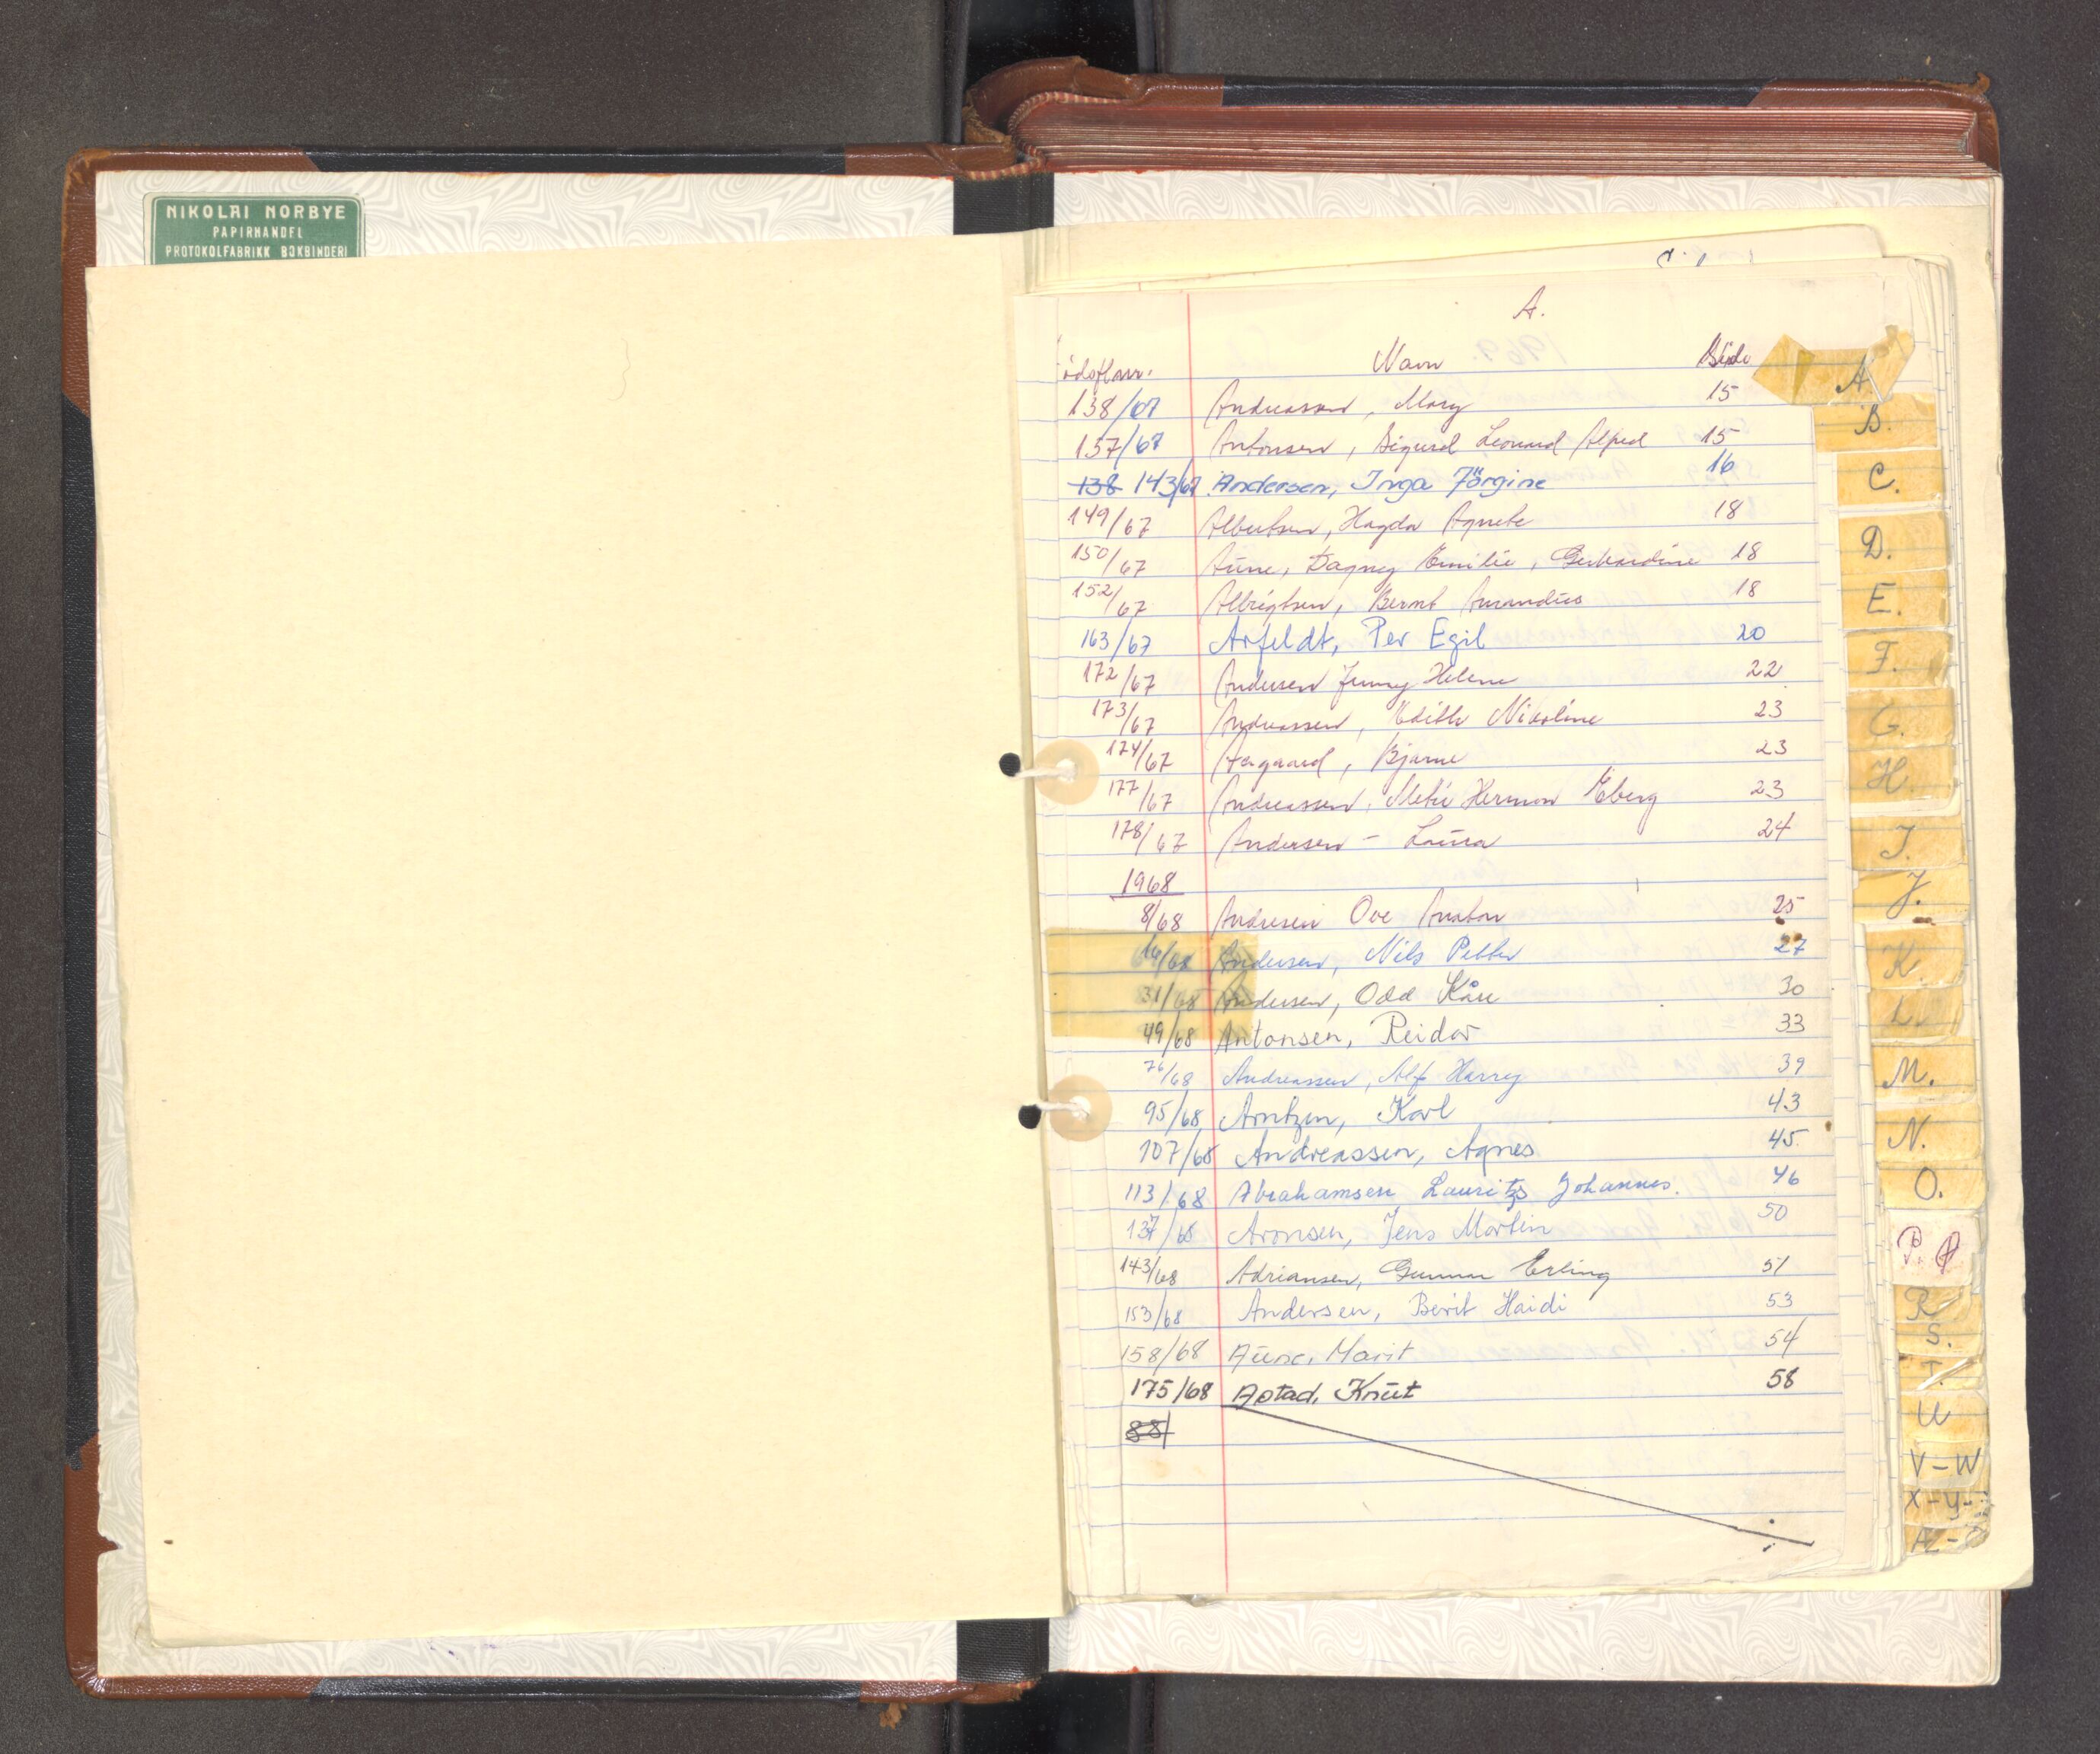 NIKOLAI NORBYE
PAPIRHANDEL
PROTOKOLFABRIKK BOKBINDERI
A.
ødsflnr. Navn Side
138/67 Andreassen, Mary 15
137/67 Antonsen, Sigurd Leonard Alfred 15
138 143/67 Andersen, Inga Jörgine 16
149/67 Albertsen, Magda Agnete 18
150/67 Aune, Dagny Emilie, Gerhardine 18
152/67 Albrigtsen, Bernt Amandus 18
163/67 Arfeldt, Per Egil 20
172/67 Andersen Jenny Helene 22
173/67 Andreassen, Edith Nikoline 23
174/67 Aagaard, Bjarne 23
177/67 Andreassen, Herman Eberg 23
178/67 Andersen - Laura 24
1968
8/68 Andresen Ove Anston 25
16/68 Andersen, Nils Petter 27
31/68 Andersen, Odd Kåre 30
49/68 Antonsen, Reidar 33
76/68 Andreassen, Alf Harry 39
95/68 Arntzen, Karl 43
107/68 Andreassen, Agnes 45
113/68 Abrahamsen Lauritz Johannes. 46
137/68 Aronsen, Jens Martin 50
143/68 Adriansen, Gunnar Erling 51
153/68 Andersen, Berit Haidi 53
158/68 Aune, Marit 54
175/68 Astad, Knut 58
88/
A
B.
C.
D.
E.
F.
G.
H.
I.
J.
K.
L.
M.
N.
O.
P. Q
R
S.
T.
U
V-W
X-Y-
Æ-Ø